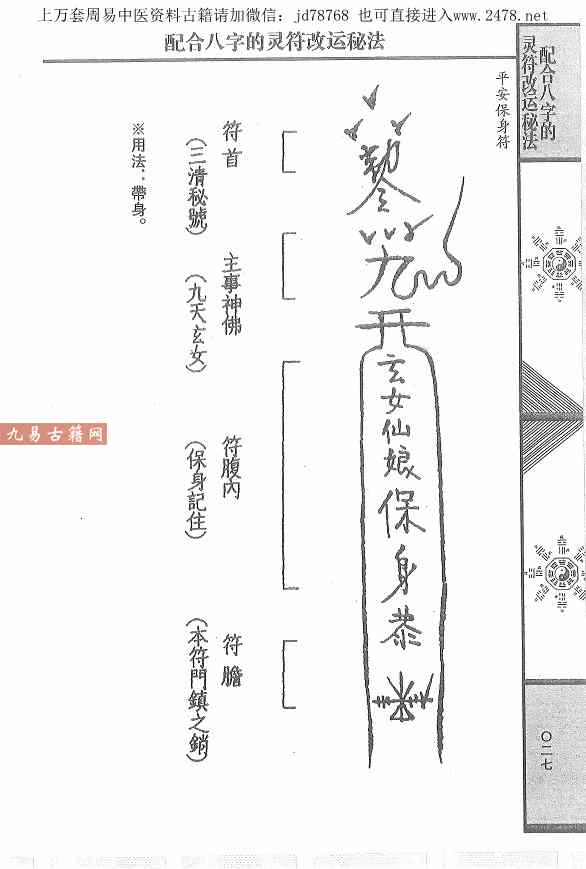 上万套周易中医资料古籍请加微信：jd78768 也可直接进入www.2478.net
配合八字的灵符改运秘法
配合八字的
灵符改运秘法
平安保身符
玄女仙娘保身恭
符首
（三清秘號）
主事神佛
（九天玄女）
符腹內
（保身記住）
符膽
（本符門鎮之銷）
※用法：帶身。
九易古籍网
〇二七